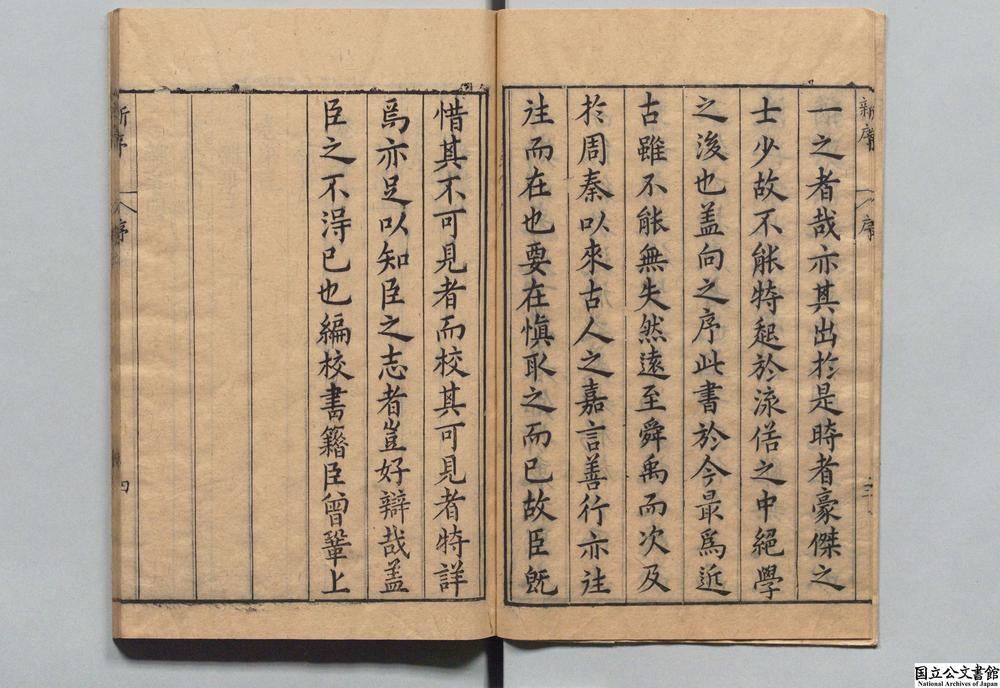 新序
序
三
一之者哉亦其出於是時者豪傑之
士少故不能特起於流俗之中絕學
之後也蓋向之序此書於今最爲近
古雖不能無失然遠至舜禹而次及
於周秦以來古人之嘉言善行亦往
往而在也要在慎取之而已故臣旣
惜其不可見者而校其可見者特詳
焉亦足以知臣之志者豈好辯哉盖
臣之不得已也編校書籍臣曾鞏上
新序
序
四
国立公文書館
National Archives of Japan